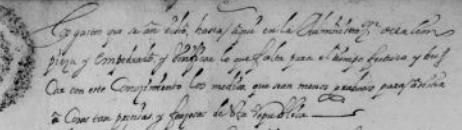 Los gastos que se an hecho hasta aqui en la Administon de la lim
pieza y Empedrado, y berificar lo que falta para el tiempo futuro y bus
car con este Conosimiento los medios que sean menos gravosos para
a Cosas tan presisas y forzosas de la Republica